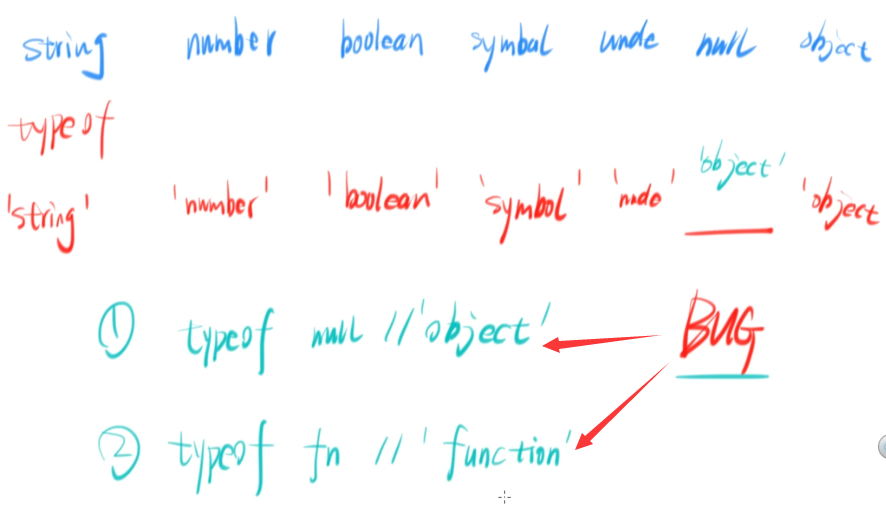 string number boolean symbal unde null object
typeof
'object'
'string' 'number' 'boolean' 'symbol' 'unde' 'object
① typeof null //'object'
BUG
② typeof fn //'function'